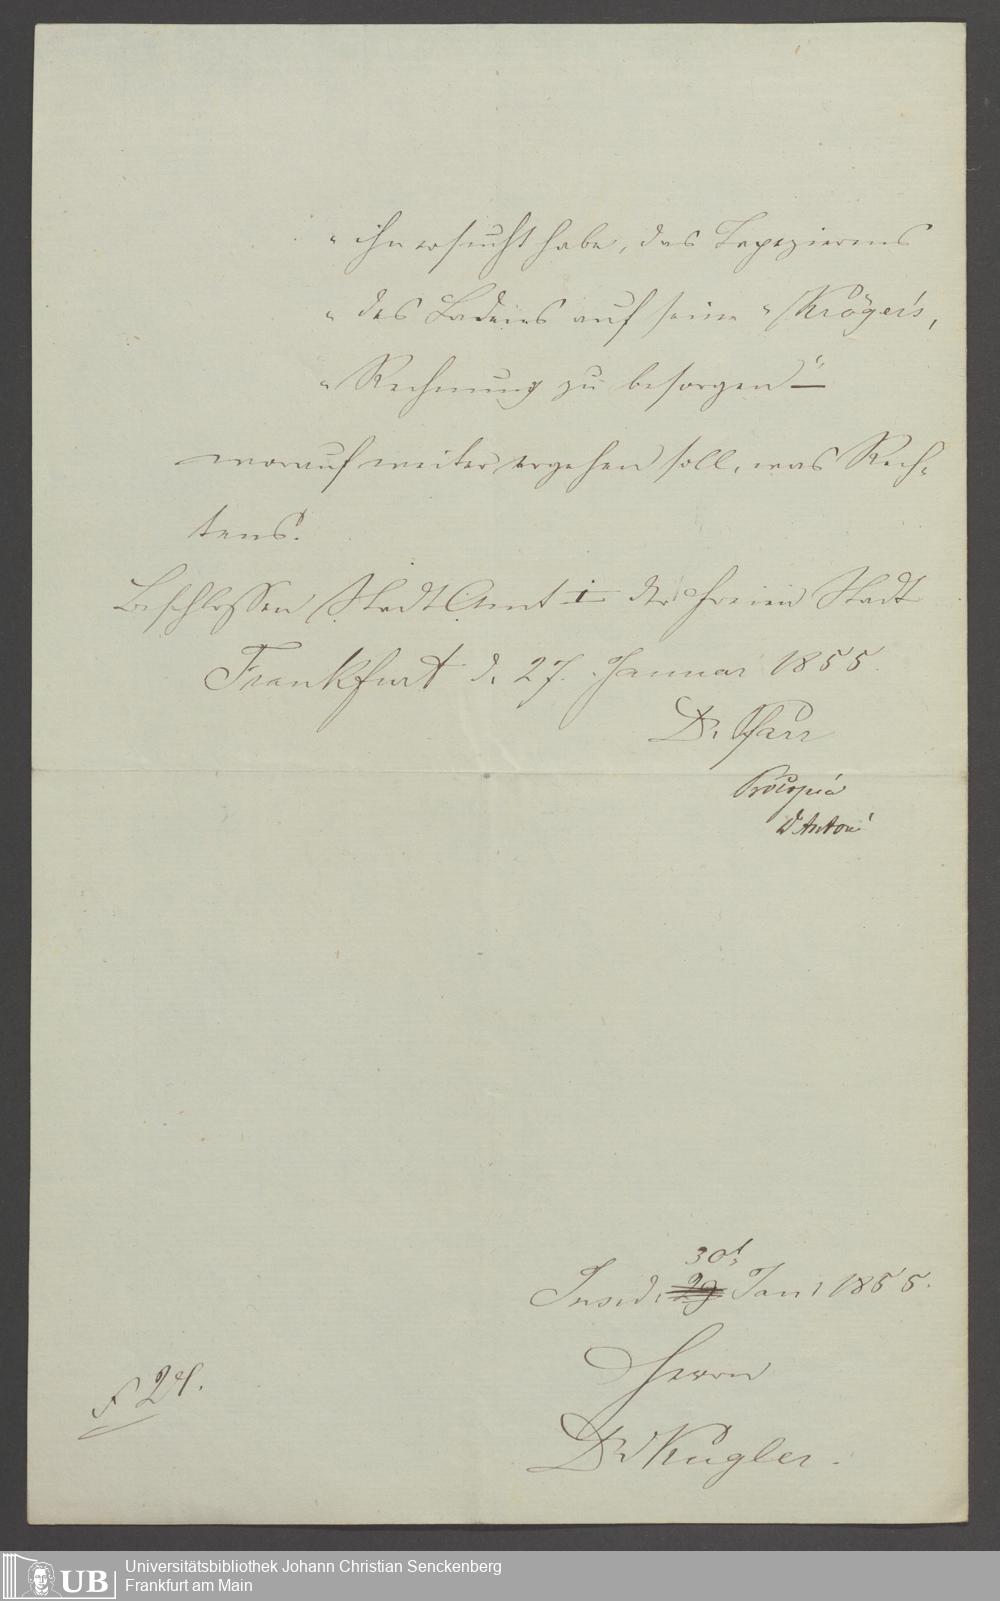 "ihn ersucht habe, das Tapezierens
"des Ladens auf seine " Kröger's,
"Rechnung zu besorgen" —
worauf weiter ergehen soll, was Rech-
tens.
Beschlossen Stadt Amt I der freien Stadt
Frankfurt d. 27. Januar 1855.
Dr. Pfarr
Pro Copia
Dr Antoni
30t.
Ins. d. 29 Jan: 1855.
Herrn
Dr Kugler.
f 24.
UB
Universitätsbibliothek Johann Christian Senckenberg
Frankfurt am Main